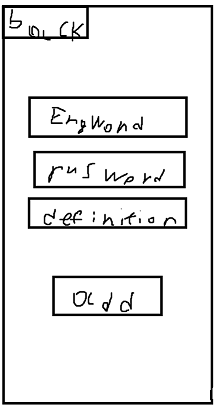 back
Eng Word
rus Word
definition
add